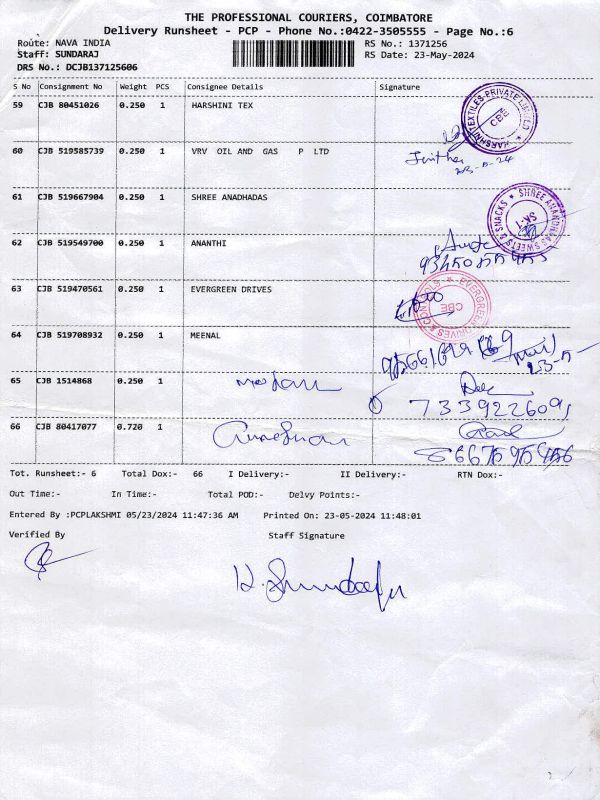 THE PROFESSIONAL COURIERS, COIMBATORE
Delivery Runsheet - PCP - Phone No.:0422-3505555 - Page No.:6
Route: NAVA INDIA RS No.: 1371256
Staff: SUNDARAJ RS Date: 23-May-2024
DRS No.: DCJB137125606
S No Consignment No Weight PCS Consignee Details Signature
59 CJB 80451026 0.250 1 HARSHINI TEX
HARSHINI TEXTILES PRIVATE LIMITED CBE
60 CJB 519585739 0.250 1 VRV OIL AND GAS P LTD
61 CJB 519667904 0.250 1 SHREE ANADHADAS
SHREE ANANDHAAS SWEETS & SNACKS SK-1
62 CJB 519549700 0.250 1 ANANTHI
63 CJB 519470561 0.250 1 EVERGREEN DRIVES
EVERGREEN DRIVES & CONTROLS CBE
64 CJB 519708932 0.250 1 MEENAL
65 CJB 1514868 0.250 1
7339226091
66 CJB 80417077 0.720 1
Tot. Runsheet:- 6 Total Dox:- 66 I Delivery:- II Delivery:- RTN Dox:-
Out Time:- In Time:- Total POD:- Delvy Points:-
Entered By :PCPLAKSHMI 05/23/2024 11:47:36 AM Printed On: 23-05-2024 11:48:01
Verified By Staff Signature